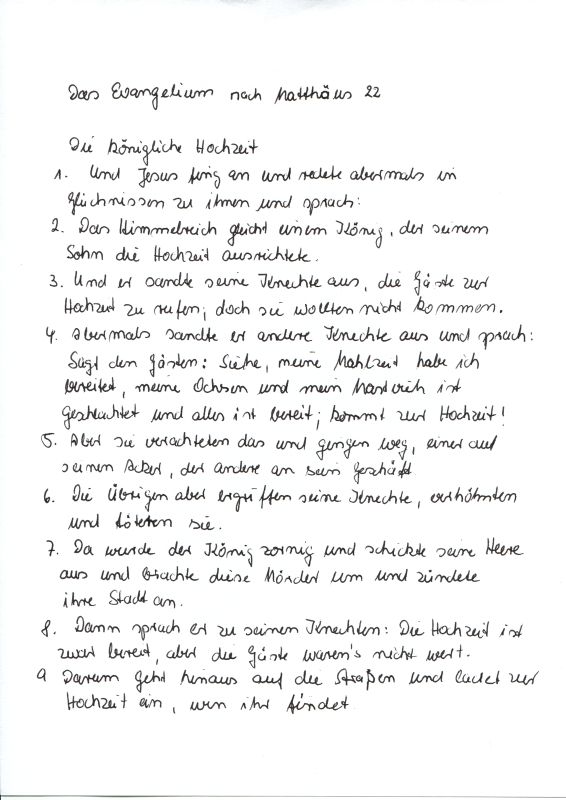 Das Evangelium nach Matthäus 22
Die königliche Hochzeit
1. Und Jesus fing an und redete abermals in
Gleichnissen zu ihnen und sprach:
2. Das Himmelreich gleicht einem König, der seinem
Sohn die Hochzeit ausrichtete.
3. Und er sandte seine Knechte aus, die Gäste zur
Hochzeit zu rufen; doch sie wollten nicht kommen.
4. Abermals sandte er andere Knechte aus und sprach:
Sagt den Gästen: Siehe, meine Mahlzeit habe ich
bereitet, meine Ochsen und mein Mastvieh ist
geschlachtet und alles ist bereit; kommt zur Hochzeit!
5. Aber sie verachteten das und gingen weg, einer auf
seinen Acker, der andere an sein Geschäft
6. Die Übrigen aber ergriffen seine Knechte, verhöhnten
und töteten sie.
7. Da wurde der König zornig und schickte seine Heere
aus und brachte diese Mörder um und zündete
ihre Stadt an.
8. Dann sprach er zu seinen Knechten: Die Hochzeit ist
zwar bereit, aber die Gäste waren's nicht wert.
9 Darum geht hinaus auf die Straßen und ladet zur
Hochzeit ein, wen ihr findet